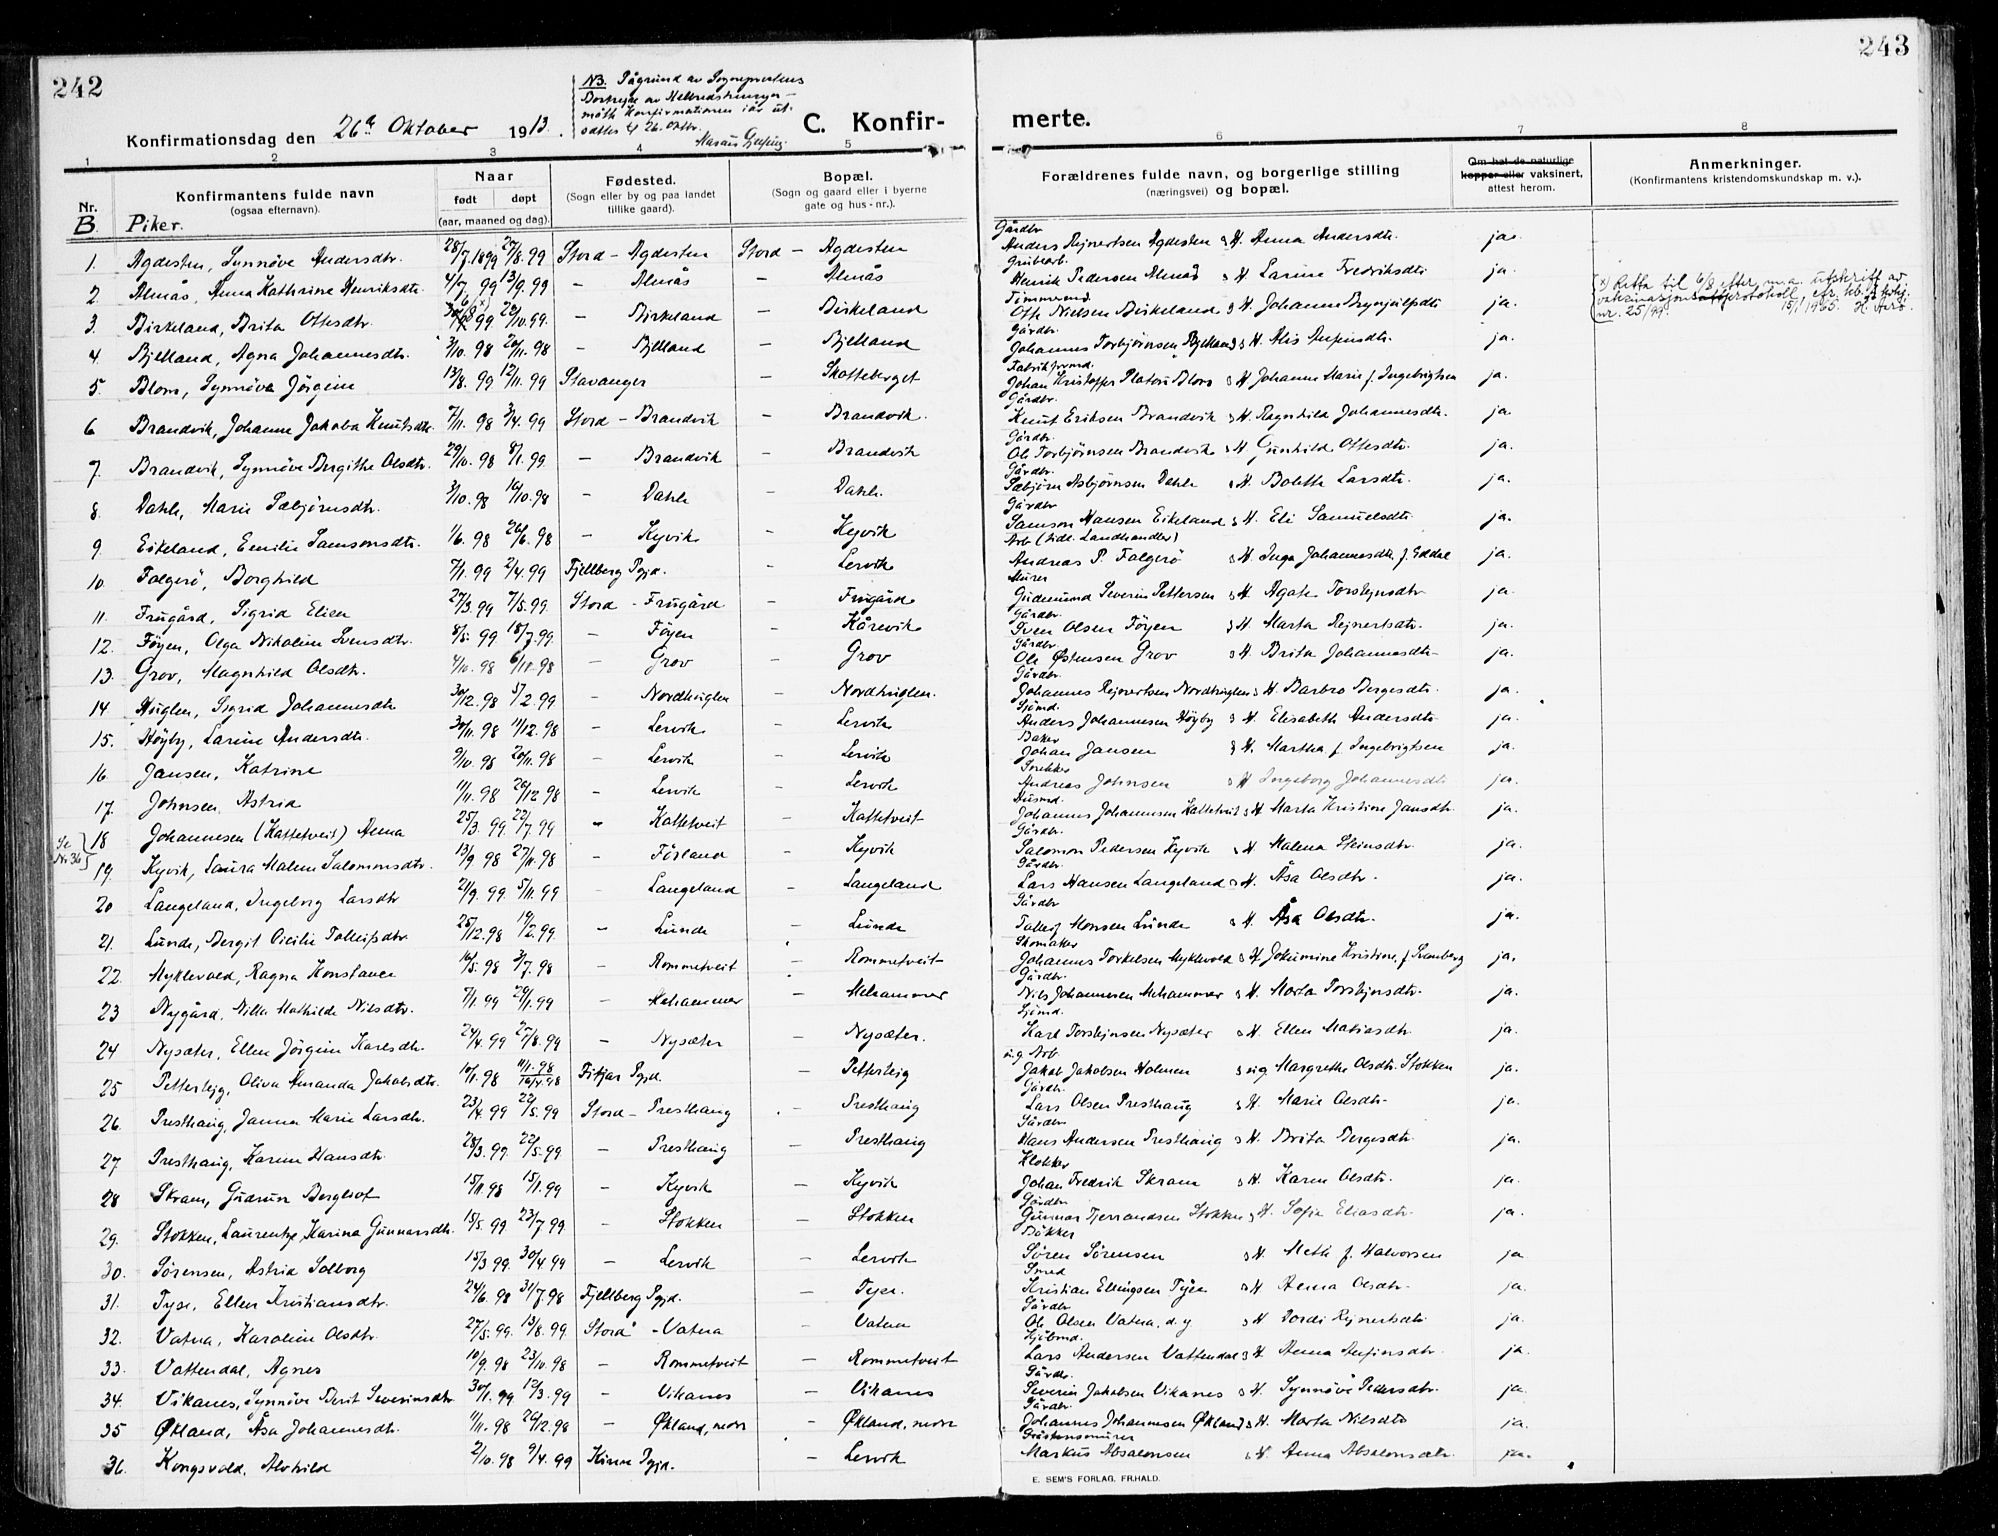 242
243
NB. Pågrund av Sogneprestens
måtte Konfirmationen iår ut-
sættes til 26. Oktbr.
Konfirmationsdag den 26de Oktober 1913.
C. Konfir-
merte.
1 2 3 4 5 6 7 8
Nr. Konfirmantens fulde navn (ogsaa efternavn). Naar født døpt (aar, maaned og dag). Fødested. (Sogn eller by og paa landet tillike gaard). Bopæl. (Sogn og gaard eller i byerne gate og hus-nr.). Forældrenes fulde navn, og borgerlige stilling (næringsvei) og bopæl. Om hat de naturlige kopper eller vaksinert, attest herom. Anmerkninger. (Konfirmantens kristendomskundskap m. v.).
B Piker.
1. Agdesten, Synnöve Andersdtr. 28/7.1899 27/8.99 Stord – Agdesten Stord – Agdesten Gårdbr. Anders Rejnertsen Agdesten & H. Anna Andersdtr. ja.
2. Almås, Anna Kathrine Henriksdtr. 4/7. 99 13/9.99 – Almås – Almås Grubearb. Henrik Pedersen Almås & H. Larine Fredriksdtr. ja.
3. Birkeland, Brita Ottesdtr. 99 22/10.99. – Birkeland – Birkeland Tömmermd. Otte Nielsen Birkeland & H. Johanne Brynjulfsdtr. ja. x) Retta til 6/8 etter m.a. utskrift av vaksinasjonsprotokoll, nr. 25/99. 15/1 1965.
4. Bjelland, Agna Johannesdtr. 3/10. 98 20/11. 98 – Bjelland – Bjelland Gårdbr. Johannes Torbjørnsen Bjelland & H. Alis Anfinsdtr. ja.
5. Blom, Synnöve Jörgine 13/8. 99 12/11. 99 Stavanger – Skotteberget Fabrikformd. Johan Kristoffer Platou Blom & H. Johanne Marie f. Ingebrigtsen ja.
6 Brandvik, Johanne Jakoba Knutsdtr. 7/11. 98 3/4. 99 Stord – Brandvik – Brandvik. Gårdbr. Knut Eriksen Brandvik & H. Ragnhild Johannesdtr. ja
7. Brandvik, Synnöve Bergithe Olsdtr. 29/10. 98 8/1. 99. – Brandvik – Brandvik Gårdbr. Ole Torbjørnsen Brandvik & H. Gunhild Ottesdtr. ja.
8. Dahle, Marie Sæbjörnsdtr. 3/10. 98 16/10.98 – Dahle – Dahle. Gårdbr. Sæbjörn Asbjørnsen Dahle & H. Bolette Larsdtr. ja.
9. Eikeland, Emilie Samsonsdtr. 1/6. 98 26/6. 98 – Kyvik – Kyvik Gårdbr. Samson Hansen Eikeland & H. Eli Samuelsdtr. ja.
10. Falgerö, Borghild 7/1. 99 2/4. 99 Fjellberg Pgjd. – Lervik Arb. (tidl. Landhandler) Andreas P. Falgerö & H. Inga Johannesdtr. f. Eddal ja.
11. Frugård, Sigrid Elien 27/3. 99 7/5. 99. Stord – Frugård – Frugård Murer Gudmund Severin Pettersen & H. Agate Torstejnsdtr. ja.
12. Föyen, Olga Nikoline Svensdtr. 8/5. 99 18/7. 99. – Föyen – Kårevik Gårdbr. Sven Olsen Föyen & H. Marta Rejnertsdtr. ja.
13. Grov, Magnhild Olsdtr. 4/10. 98 6/11. 98 – Grov – Grov Gårdbr. Ole Østensen Grov & H. Brita Johannesdtr. ja.
14. Huglen, Sigrid Johannesdtr. 30/12. 98 5/2. 99 – Nordhuglen – Nordhuglen. Gårdbr. Johannes Rejnertsen Nordhuglen & H. Barbro Bergesdtr. ja.
15. Höyby, Larine Andersdtr. 30/11. 98 11/12. 98 – Lervik – Lervik Sjömd. Anders Johannesen Höyby & H. Elisabeth Andersdtr. ja.
16. Jansen, Katrine 9/10. 98 20/11. 98 – Lervik – Lervik Baker Johan Jansen & H. Martha f. Ingebrigtsen ja.
17. Johnsen, Astrid 11/11. 98 26/12. 98 – Lervik – Lervik Snekker Andreas Johnsen & H. Ingeborg Johannesdtr. ja.
Se Nr 36 18 Johannesen (Kattetveit) Anna 25/3. 99. 22/7. 99 – Kattetveit – Kattetveit Husmd. Johannes Johannesen Kattetveit & H. Marta Kristine Jansdtr. ja.
19. Kyvik, Laura Malene Salomonsdtr. 13/9. 98 27/11. 98 – Förland – Kyvik Gårdbr. Salomon Pedersen Kyvik & H. Malena Steinsdtr. ja.
20 Langeland, Ingeborg Larsdtr 2/9. 99. 5/11. 99 – Langeland – Langeland Gårdbr. Lars Hansen Langeland & H. Åsa Olsdtr. ja.
21. Lunde, Bergit Cicilie Tolleifsdtr. 25/12.98 19/2.99. – Lunde – Lunde Gårdbr. Tolleif Monsen Lunde & H. Åsa Olsdtr. ja.
22. Myklevold, Ragna Konstance 16/5. 98 3/7. 98 – Rommetveit – Rommetveit Skomaker Johannes Torkelsen Myklevold & H. Johannine Kristine, f. Svanberg ja.
23 Nygård, Nille Mathilde Nilsdtr. 7/1. 99 29/1. 99 – Mehammer – Mehammer Gårdbr. Nils Johannesen Mehammer & H. Marta Torstejnsdtr. ja.
24 Nysæter, Ellen Jörgine Karlsdtr. 24/4. 99 27/8. 99 – Nysæter – Nysæter. Sjömd. Karl Torstejnsen Nysæter & H. Ellen Matiasdtr. ja.
25 Petterteig, Oliva Amanda Jakobsdtr. 10/1. 98 11/1.98 16/4.98 Fitjar Pgjd. – Petterteig ug. Arb. Jakob Jakobsen Holmen & ug. Margrethe Olsdtr. Stokken ja.
26. Presthaug, Janna Marie Larsdtr. 23/4. 99 22/5. 99 Stord – Presthaug – Presthaug Gårdbr. Lars Olsen Presthaug & H. Marie Olsdtr. ja.
27 Presthaug, Karen Hansdtr. 28/3. 99. 22/5. 99 – Presthaug – Presthaug Gårdbr. Hans Andersen Presthaug & H. Brita Bergesdtr. ja.
28 Skram, Gudrun Bergliot 15/11. 98 15/1. 99 – Kyvik – Kyvik Klokker Johan Fredrik Skram & H. Karen Olsdtr. ja.
29. Stokken, Laurentze Karina Gunnarsdtr. 15/5. 99 23/7. 99 – Stokken – Stokken Gårdbr. Gunnar Tjerrandsen Stokken & H. Sofie Eliasdtr. ja.
30. Sörensen, Astrid Solborg 15/3 99. 30/4 99 – Lervik – Lervik Bökker Sören Sörensen & H. Meta f. Halvorsen ja
31. Tyse, Ellen Kristiansdtr. 24/6. 98 31/7. 98 Fjellberg Pgjd. – Tyse. Smed Kristian Ellingsen Tyse & H. Anna Olsdtr. ja.
32. Vatna, Karoline Olsdtr. 27/5. 99. 13/8. 99. Stord – Vatna – Vatna Gårdbr. Ole Olsen Vatna, d. y. & H. Dordi Rejnertsdtr. ja.
33. Vattendal, Agnes 10/9. 98 23/10. 98 – Rommetveit – Rommetveit Hjulmd. Lars Andersen Vattendal & H. Anna Anfinsdtr. ja.
34. Vikanes, Synnöve Berit Severinsdtr. 30/1. 99 12/3. 99 – Vikanes – Vikanes Gårdbr. Severin Jakobsen Vikanes & H. Synnöve Pedersdtr. ja.
35 Økland, Åsa Johannesdtr. 11/11. 98 26/12. 98 – Økland, nedre – Økland, nedre Gårdbr. Johannes Johannesen Økland & H. Marta Nilsdtr ja.
36. Kongsvold, Alvhild 2/10. 98 9/4. 99 Kinn Pgjd. – Lervik Gråstensmurer Markus Absalonsen & H. Anna Absalonsdtr. ja.
E. SEM'S FORLAG, FR.HALD.